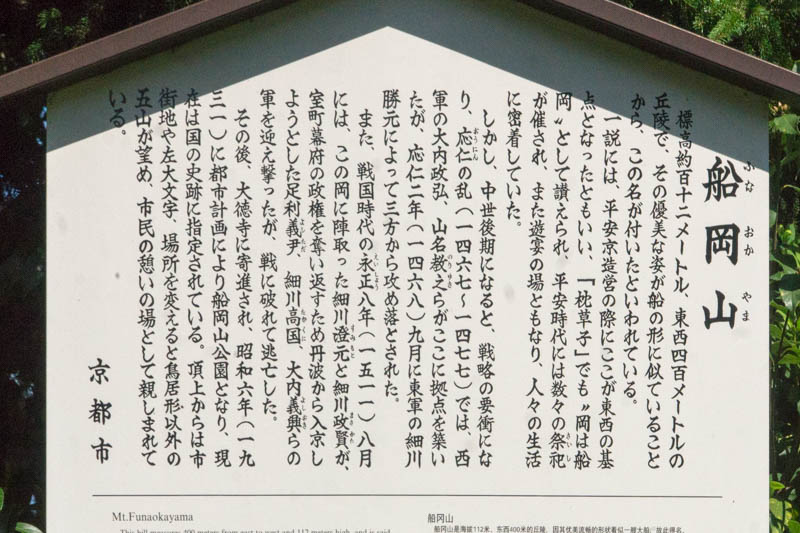 船岡山
ふな おか やま
標高約百十二メートル、東西四百メートルの
丘陵で、その優美な姿が船の形に似ていること
から、この名が付いたといわれている。
一説には、平安京造営の際にここが東西の基
点となったともいい、「枕草子」でも〝岡は船
岡〟として讃えられ、平安時代には数々の祭祀
が催され、また遊宴の場ともなり、人々の生活
に密着していた。
しかし、中世後期になると、戦略の要衝にな
り、応仁の乱（一四六七～一四七七）では、西
軍の大内政弘、山名教之らがここに拠点を築い
たが、応仁二年（一四六八）九月に東軍の細川
勝元によって三方から攻め落とされた。
また、戦国時代の永正八年（一五一一）八月
には、この岡に陣取った細川澄元と細川政賢が、
室町幕府の政権を奪い返すため丹波から入京し
ようとした足利義尹、細川高国、大内義興らの
軍を迎え撃ったが、戦に破れて逃亡した。
その後、大徳寺に寄進され、昭和六年（一九
三一）に都市計画により船岡山公園となり、現
在は国の史跡に指定されている。頂上からは市
街地や左大文字、場所を変えると鳥居形以外の
五山が望め、市民の憩いの場として親しまれて
いる。
京都市
Mt.Funaokayama
This hill measures 400 meters from east to west and 112 meters high, and is said
船冈山
船冈山是海拔112米、东西400米的丘陵，因其优美流畅的形状看似一艘大船，故此得名。